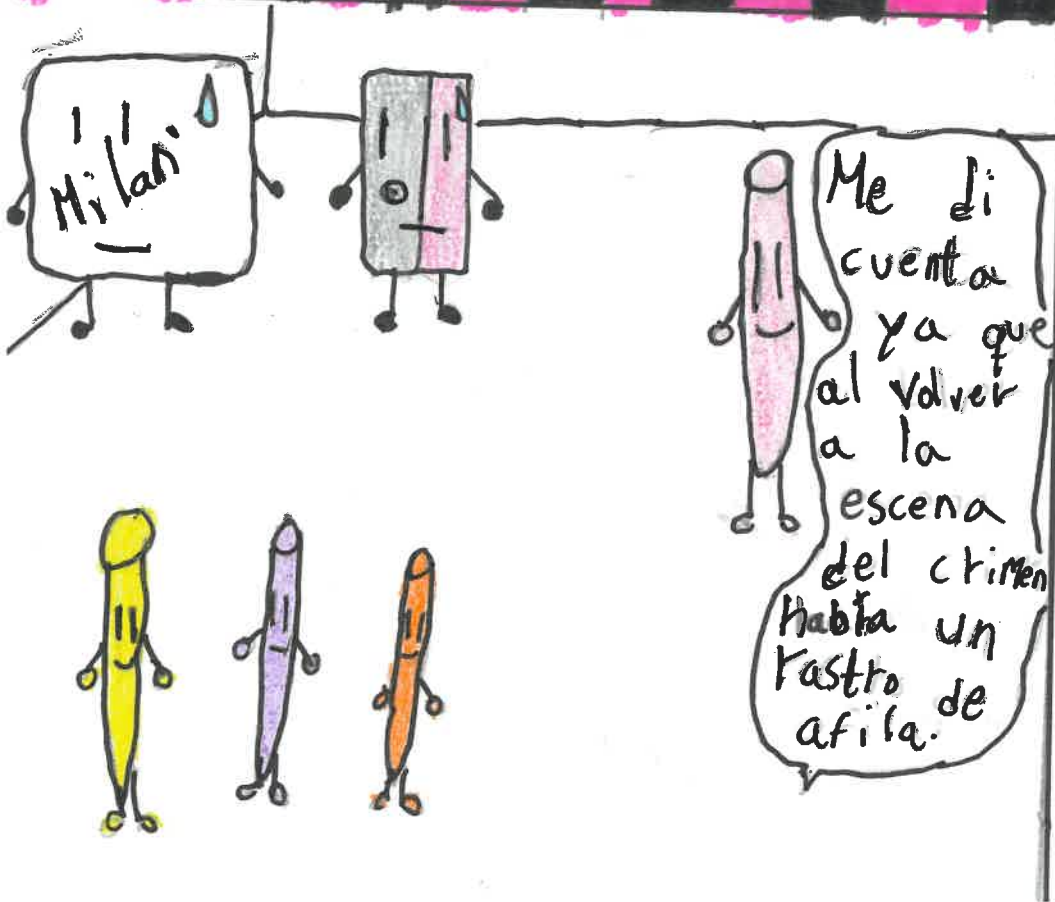 Milan
Me di
cuenta
ya que
al volver
a la
escena
del crimen
había un
rastro de
afila.